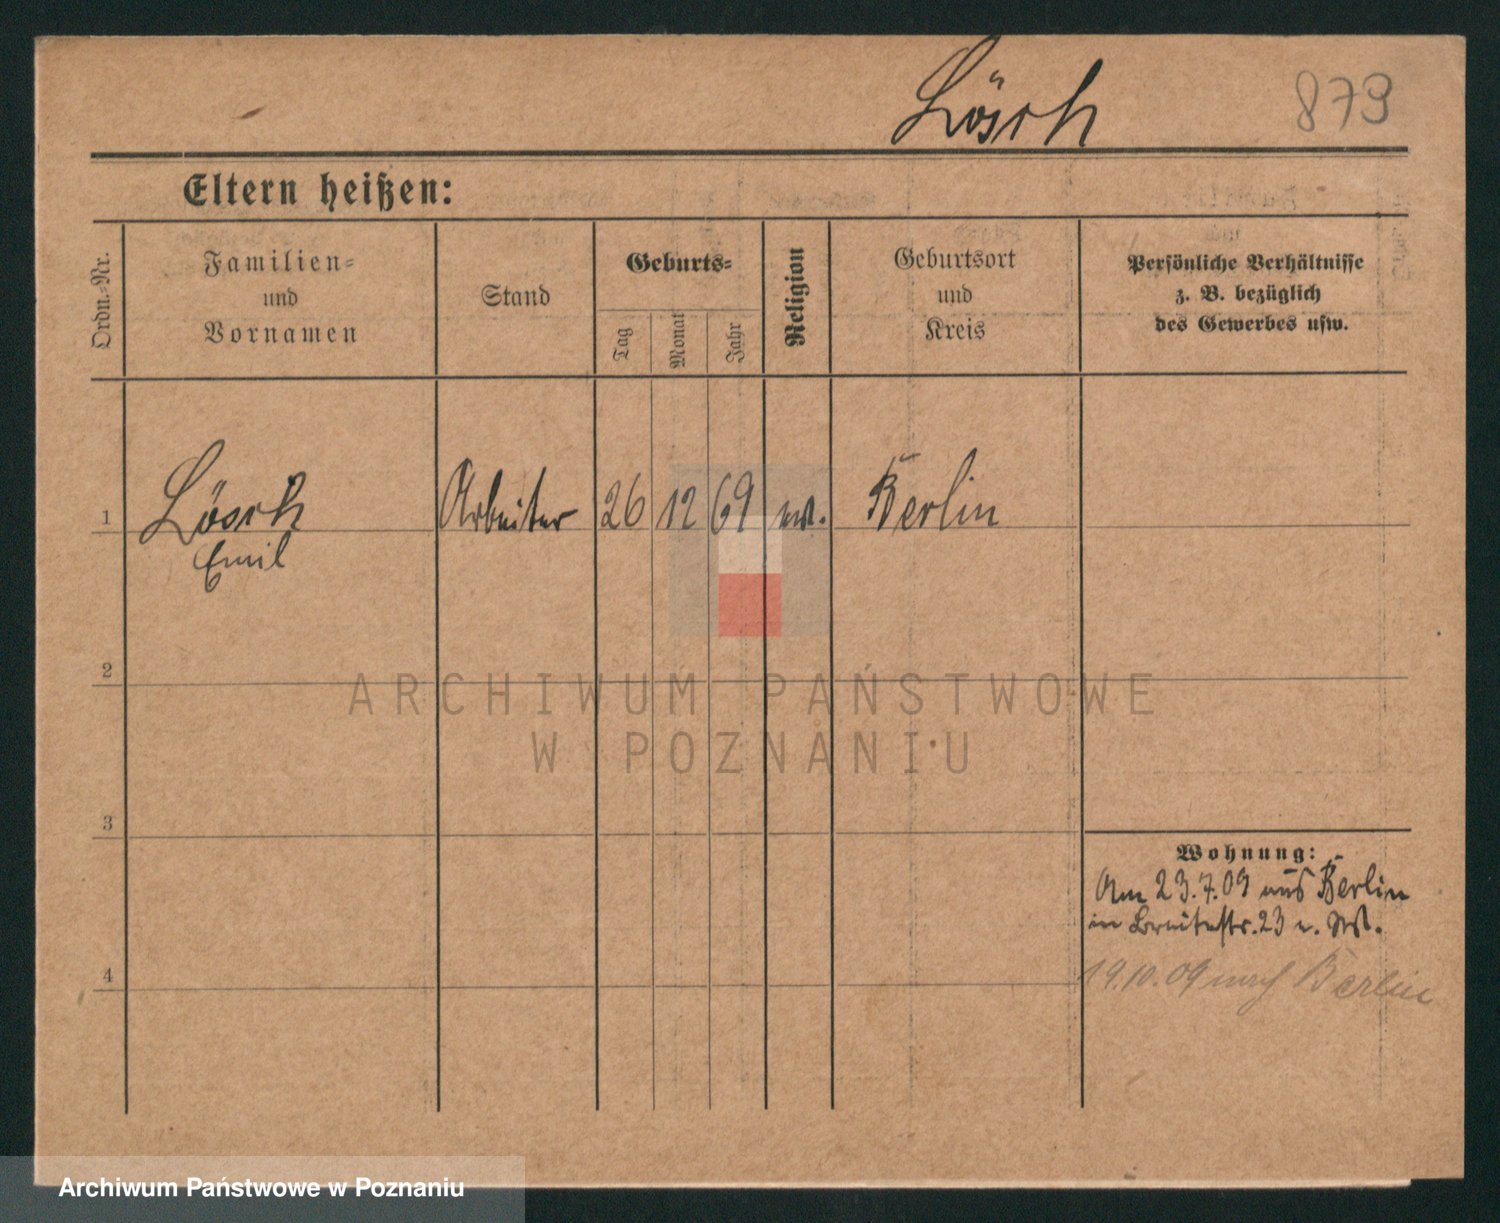 Lösch
879
Eltern heißen:
Ordn.-Nr.
Familien-
und
Vornamen
Stand
Geburts-
Tag
Monat
Jahr
Religion
Geburtsort
und
Kreis
Persönliche Verhältnisse
z. B. bezüglich
des Gewerbes usw.
1
Lösch
Emil
Arbeiter
26
12
69
ev.
Berlin
2
ARCHIWUM PAŃSTWOWE
W POZNANIU
3
Wohnung:
Am 23.7.09 aus Berlin
in Breitestr. 23
4
19.10.09 nach Berlin
Archiwum Państwowe w Poznaniu